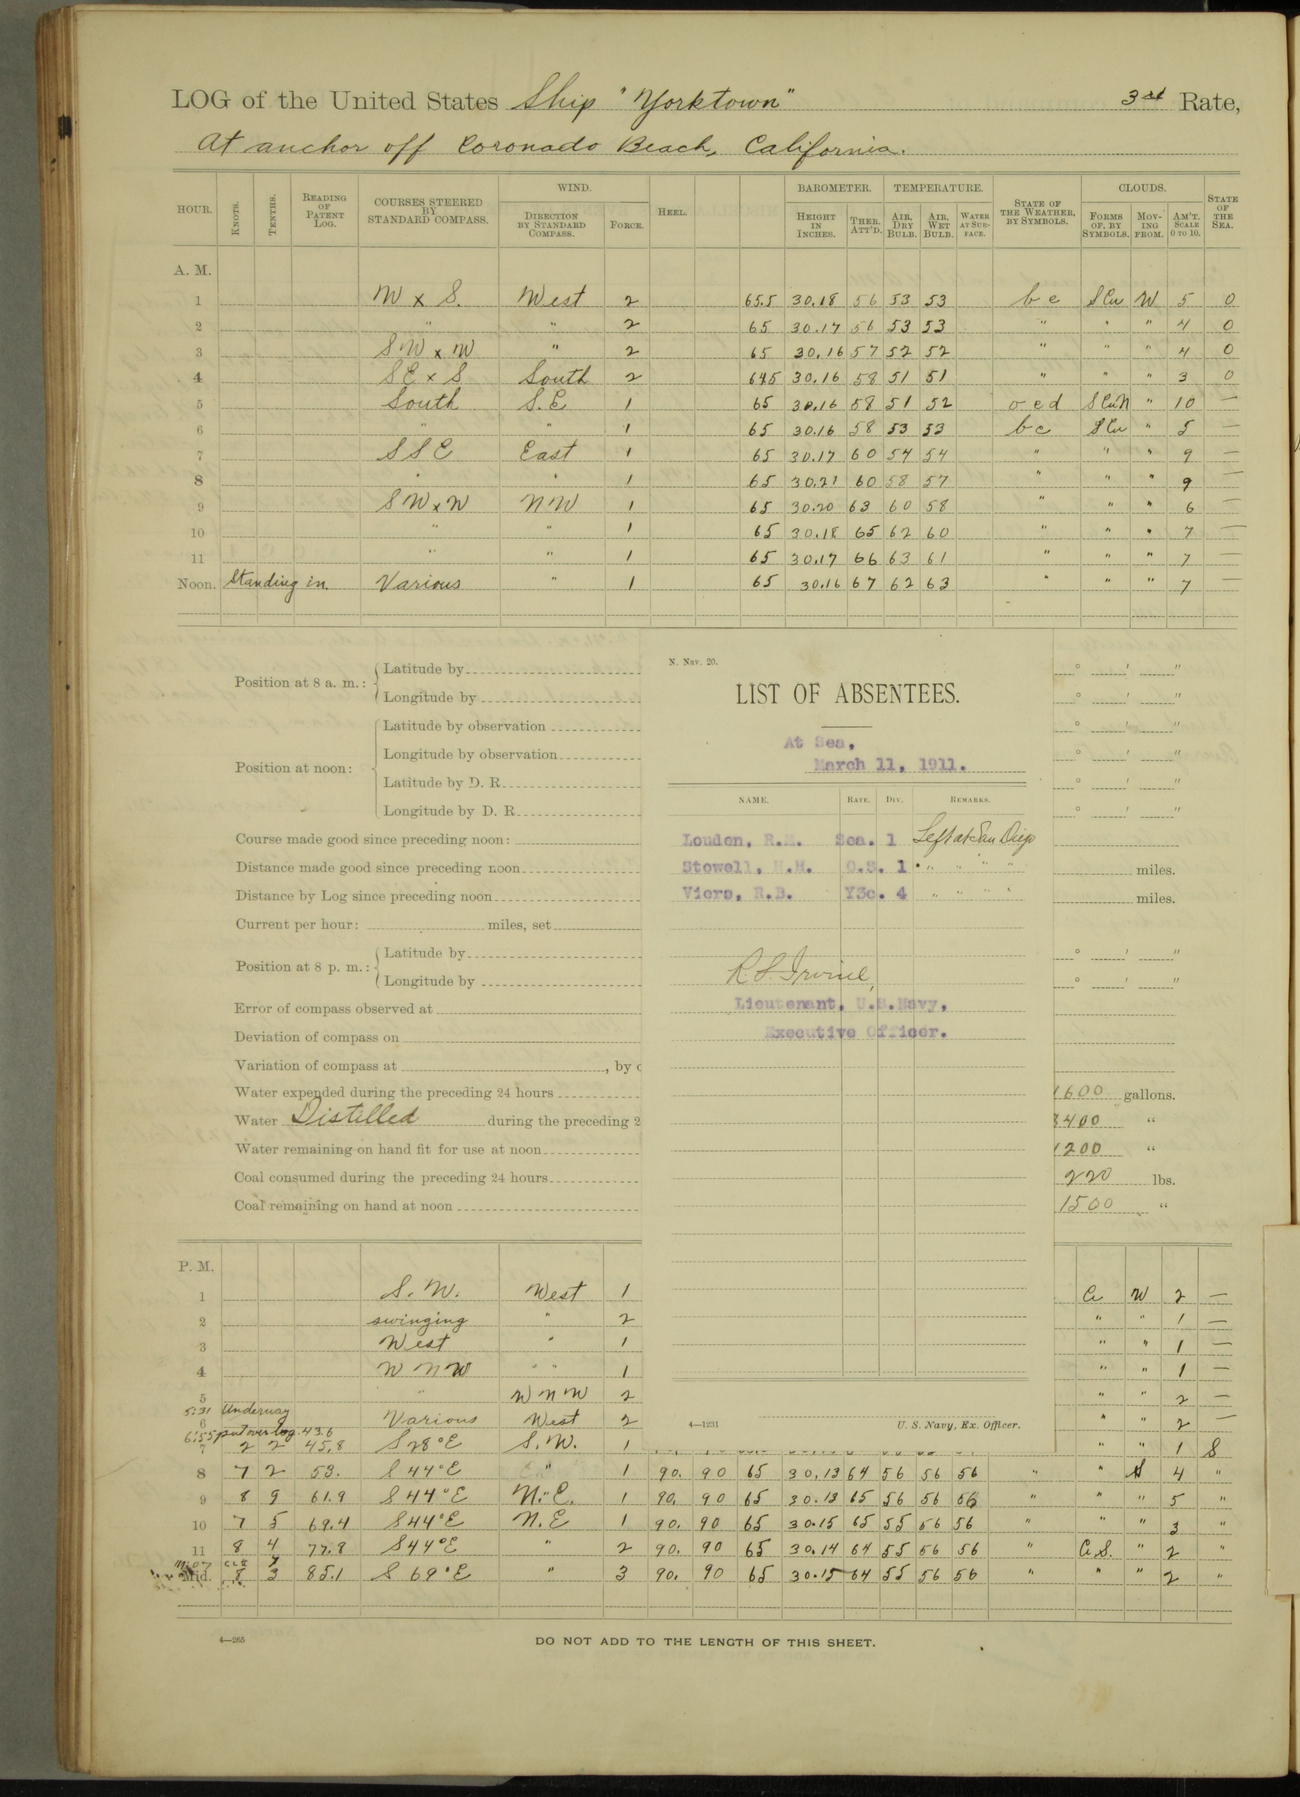 LOG of the United States Ship "Yorktown" 3rd Rate,
At anchor off Coronado Beach, California.
HOUR. KNOTS. TENTHS. READING OF PATENT LOG. COURSES STEERED BY STANDARD COMPASS. WIND. DIRECTION BY STANDARD COMPASS. FORCE. HEEL. BAROMETER. HEIGHT IN INCHES. THER. ATT'D. TEMPERATURE. AIR, DRY BULB. AIR, WET BULB. WATER AT SURFACE. STATE OF THE WEATHER, BY SYMBOLS. CLOUDS. FORMS OF, BY SYMBOLS. MOVING FROM. AM'T. SCALE 0 TO 10. STATE OF THE SEA.
A. M.
1 W x S. West 2 65.5 30.18 56 53 53 b c S Cu W 5 0
2 " " 2 65 30.17 56 53 53 " " " 4 0
3 SW x W " 2 65 30.16 57 52 52 " " " 4 0
4 SE x S South 2 64.5 30.16 58 51 51 " " " 3 0
5 South S.E 1 65 30.16 58 51 52 o c d S Cu N " 10 —
6 " " 1 65 30.16 58 53 53 b c S Cu " 5 —
7 S S E East 1 65 30.17 60 54 54 " " " 9 —
8 " " 1 65 30.21 60 58 57 " " " 9 —
9 S W x W N W 1 65 30.20 63 60 58 " " " 6 —
10 " " 1 65 30.18 65 62 60 " " " 7 —
11 " " 1 65 30.17 66 63 61 " " " 7 —
Noon. Standing in. Various " 1 65 30.16 67 62 63 " " " 7 —
Position at 8 a. m.: Latitude by
Longitude by
Position at noon: Latitude by observation
Longitude by observation
Latitude by D. R.
Longitude by D. R.
Course made good since preceding noon:
Distance made good since preceding noon miles.
Distance by Log since preceding noon miles.
Current per hour: miles, set
Position at 8 p. m.: Latitude by
Longitude by
Error of compass observed at
Deviation of compass on
Variation of compass at , by
Water expended during the preceding 24 hours 1600 gallons.
Water Distilled during the preceding 2 3400 "
Water remaining on hand fit for use at noon 1200 "
Coal consumed during the preceding 24 hours 220 lbs.
Coal remaining on hand at noon 1500 "
N. Nav. 20.
LIST OF ABSENTEES.
At Sea,
March 11, 1911.
NAME. RATE. DIV. REMARKS.
Louden, R.M. Sea. 1 Left at San Diego
Stowell, H.M. O.S. 1 " " " "
Viers, R.B. Y3c. 4 " " " "
R. S. Irvine,
Lieutenant, U.S.Navy,
Executive Officer.
4—1231 U. S. Navy, Ex. Officer.
P. M.
1 S. W. West 1 Ci W 2 —
2 swinging " 2 " " 1 —
3 West " 1 " " 1 —
4 W N W " " 1 " " 1 —
5 " W N W 2 " " 2 —
5:31 Underway
6 Various West 2 " " 2 —
6:55 put over log. 43.6
7 2 2 45.8 S 28° E S. W. 1 " " 1 S
8 7 2 53. S 44° E " 1 90. 90 65 30.13 64 56 56 56 " " S 4 "
9 8 9 61.9 S 44° E N. E. 1 90. 90 65 30.13 65 56 56 56 " " " 5 "
10 7 5 69.4 S 44° E N. E 1 90. 90 65 30.15 65 55 56 56 " " " 3 "
11 8 4 77.8 S 44° E " 2 90. 90 65 30.14 64 55 56 56 " Ci S. " 2 "
Mid. 8 3 85.1 S 69° E " 3 90. 90 65 30.15 64 55 56 56 " " " 2 "
4—265
DO NOT ADD TO THE LENGTH OF THIS SHEET.